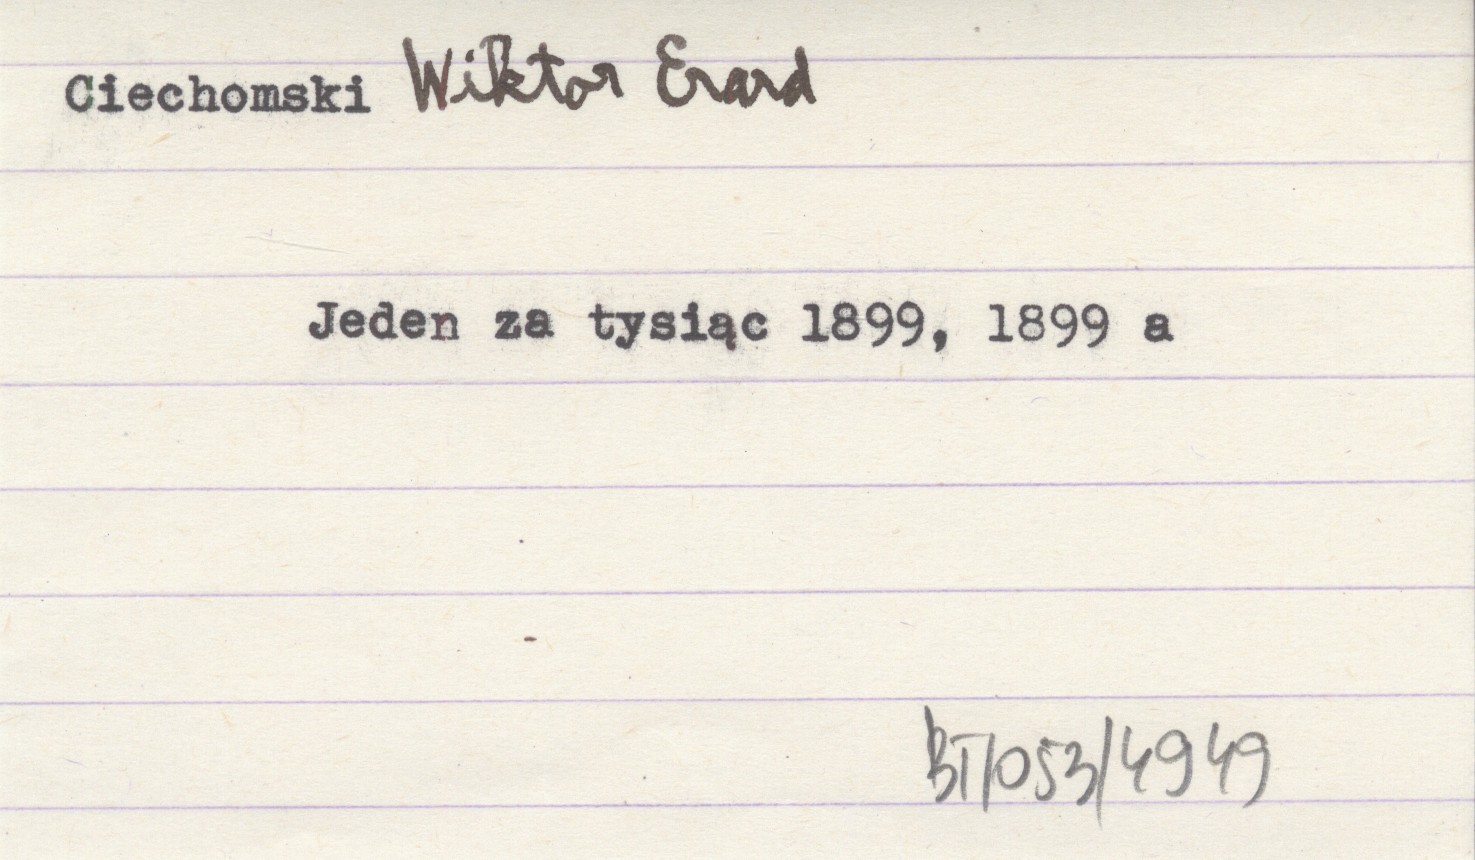 Ciechomski Wiktor Erard
Jeden za tysiąc 1899, 1899 a
BT/053/4949